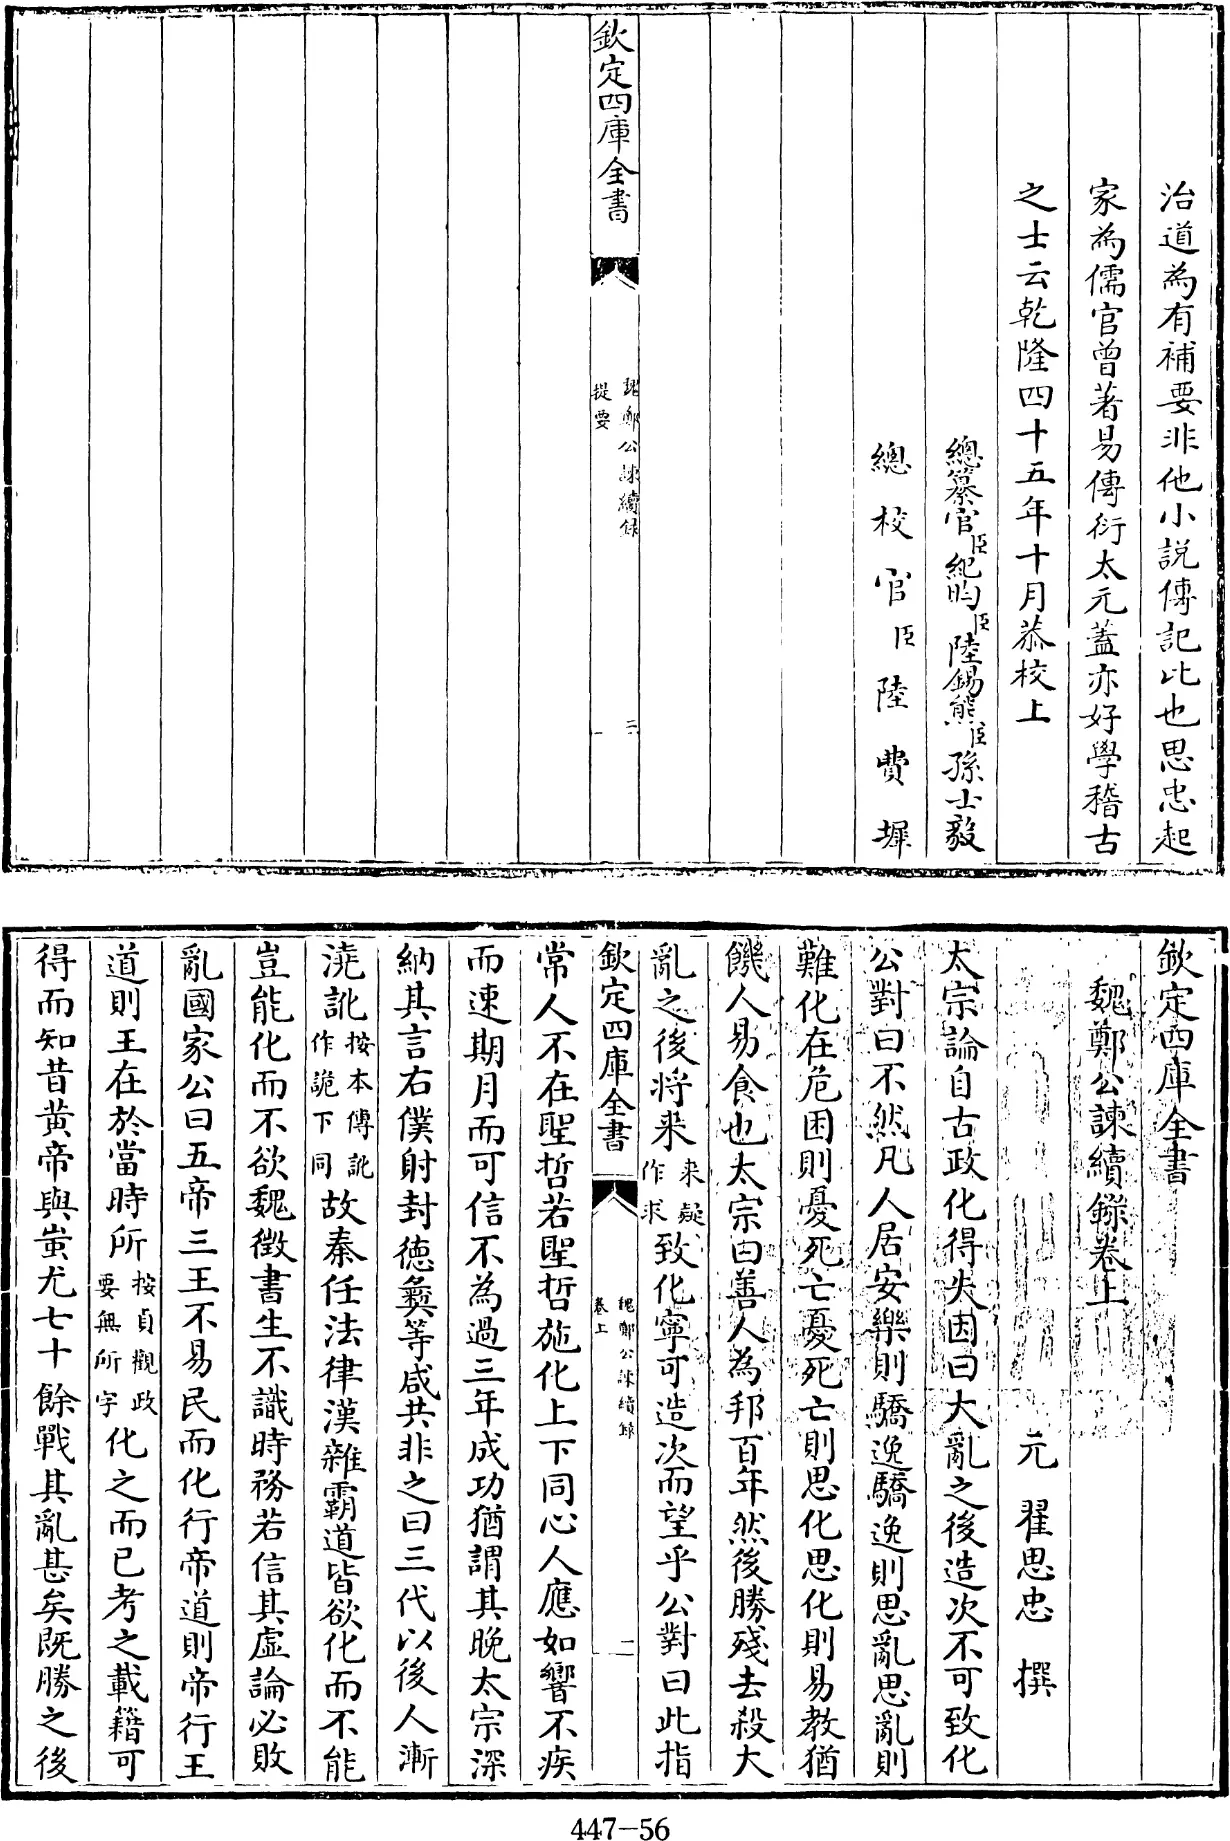 治道為有補要非他小説傳記比也思忠起
家為儒官曾著易傳衍太元蓋亦好學稽古
之士云乾隆四十五年十月恭校上
總纂官臣紀昀臣陸錫熊臣孫士毅
總校官臣陸費墀
欽定四庫全書
魏鄭公諫續錄
提要
三
欽定四庫全書
魏鄭公諫續錄卷上
元 翟思忠 撰
太宗論自古政化得失因曰大亂之後造次不可致化
公對曰不然凡人居安樂則驕逸驕逸則思亂思亂則
難化在危困則憂死亡憂死亡則思化思化則易教猶
饑人易食也太宗曰善人為邦百年然後勝殘去殺大
亂之後將来来疑作求致化寧可造次而望乎公對曰此指
欽定四庫全書
魏鄭公諫續錄
卷上
二
常人不在聖哲若聖哲施化上下同心人應如響不疾
而速期月而可信不為過三年成功猶謂其晚太宗深
納其言右僕射封德彝等咸共非之曰三代以後人漸
澆訛按本傳訛作詭下同故秦任法律漢雜霸道皆欲化而不能
豈能化而不欲魏徵書生不識時務若信其虛論必敗
亂國家公曰五帝三王不易民而化行帝道則帝行王
道則王在於當時所按貞觀政要無所字化之而已考之載籍可
得而知昔黄帝與蚩尤七十餘戰其亂甚矣既勝之後
447-56